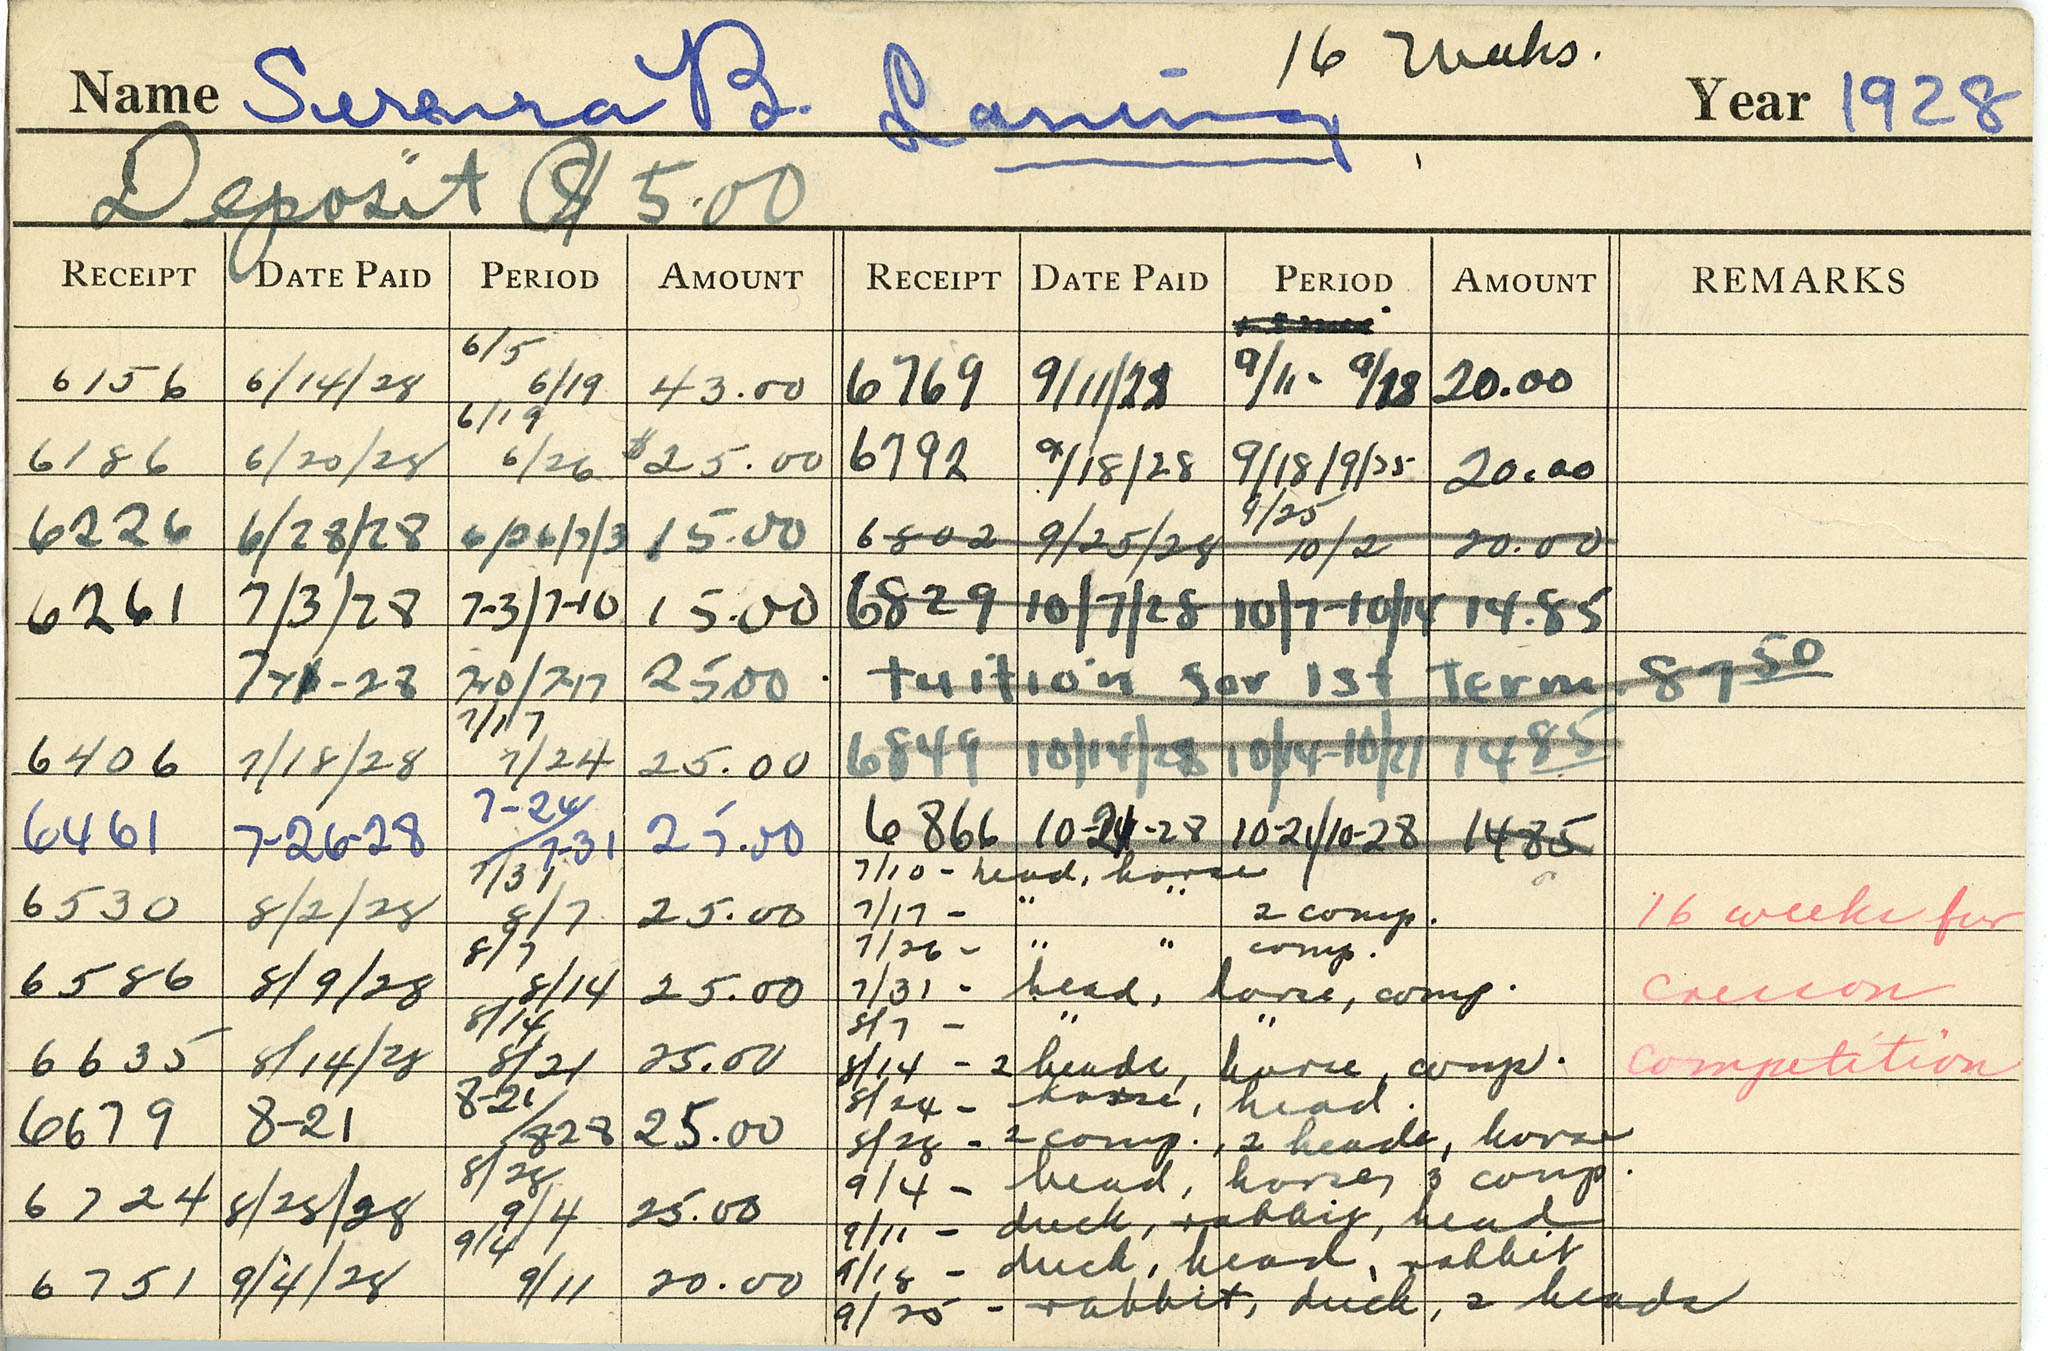 16 Weeks.
Name Serena B. Laning Year 1928
Deposit Pd 5.00
RECEIPT DATE PAID PERIOD AMOUNT RECEIPT DATE PAID PERIOD AMOUNT REMARKS
6156 6/14/28 6/5 6/19 43.00 6769 9/11/28 9/11- 9/18 20.00
6186 6/20/28 6/19 6/26 $25.00 6792 9/18/28 9/18/9/25 20.00
6226 6/28/28 6/26/7/3 15.00 6802 9/25/28 9/25 10/2 20.00
6261 7/3/28 7-3/7-10 15.00 6829 10/7/28 10/7-10/14 14.85
-28 7-10/7-17 25.00 Tuition for 1st Term. 87 50
6406 7/18/28 7/17 7/24 25.00 6849 10/14/28 10/14-10/21 14 85
6461 7-26-28 7-24/7-31 25.00 6866 10-21-28 10-21/10-28 14 85
7/10 - head, horse
6530 8/2/28 7/31 8/7 25.00 7/17 - " " 2 comp. 16 weeks for
7/26 - " " comp.
6586 8/9/28 8/7 8/14 25.00 7/31 - head, horse, comp. Cresson
8/7 - " "
6635 8/14/28 8/14 8/21 25.00 8/14 - 2 heads, horse, comp. competition
8/24 - horse, head.
6679 8-21 8-21/828 25.00 8/28 - 2 comp., 2 heads, horse
9/4 - head, horse, 3 comp.
6724 8/28/28 8/28 9/4 25.00 9/11 - duck, rabbit, head
9/18 - duck, head, rabbit
6751 9/4/28 9/4 9/11 20.00 9/25 - rabbit, duck, 2 heads